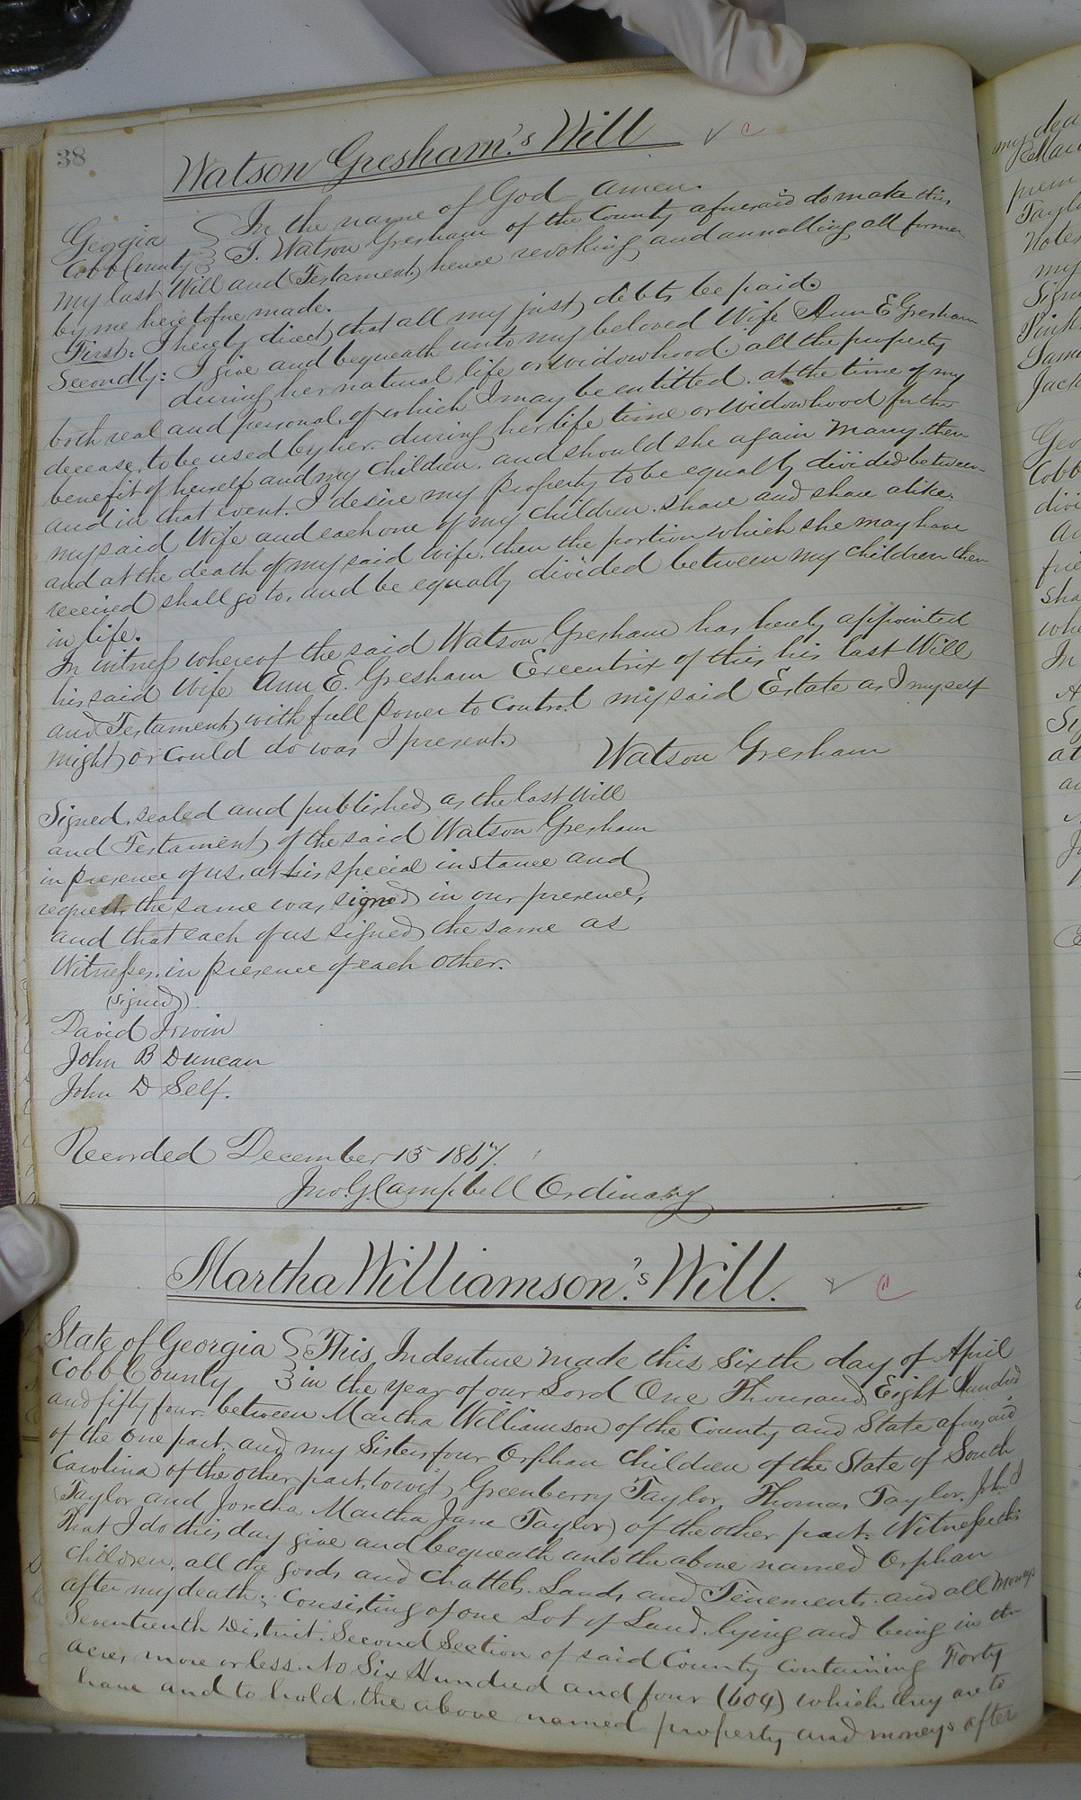 38
Watson Gresham's Will
Georgia In the name of God Amen.
Cobb County I. Watson Gresham of the County aforesaid do make this
my last Will and Testament, hence revoking and annulling all former
by me heretofore made.
First: I hereby direct that all my just debts be paid.
Secondly: I give and bequeath unto my beloved Wife Ann E Gresham
during her natural life or widowhood, all the property
both real and personal, of which I may be entitled at the time of my
decease, to be used by her during her life time or widowhood for the
benefit of herself and my children, and should she again Marry, then
and in that event, I desire my property to be equally divided between
my said Wife and each one of my children, share and share alike
and at the death of my said wife, then the portion which she may have
received shall go to, and be equally divided between my children then
in life.
In witness whereof the said Watson Gresham has hereby appointed
his said Wife Ann E. Gresham Executrix of this his last Will
and Testament, with full power to control my said Estate as I myself
might or could do was I present.
Watson Gresham
Signed, sealed and published as the last Will
and Testament of the said Watson Gresham
in presence of us, at his special instance and
request, the same was signed in our presence,
and that each of us signed the same as
Witnesses in presence of each other.
(signed)
David Irwin
John B Duncan
John D Self.
Recorded December 15 1867.
Jno. G. Campbell Ordinary
Martha Williamson's Will.
State of Georgia This Indenture made this sixth day of April
Cobb County in the year of our Lord One Thousand Eight Hundred
and fifty four between Martha Williamson of the County and State aforesaid
of the one part, and my Sisters four Orphan children of the State of South
Carolina of the other part, towit, Greenberry Taylor, Thomas Taylor, John J
Taylor and Martha Jane Taylor of the other part. Witnesseth
That I do this day give and bequeath unto the above named Orphan
Children, all the goods and chattels, Lands and Tenements and all moneys
after my death; Consisting of one Lot of Land, lying and being in the
Seventeenth District. Second Section of said County containing Forty
acres, more or less. No Six Hundred and four (604) which they are to
have and to hold, the above named property and moneys after